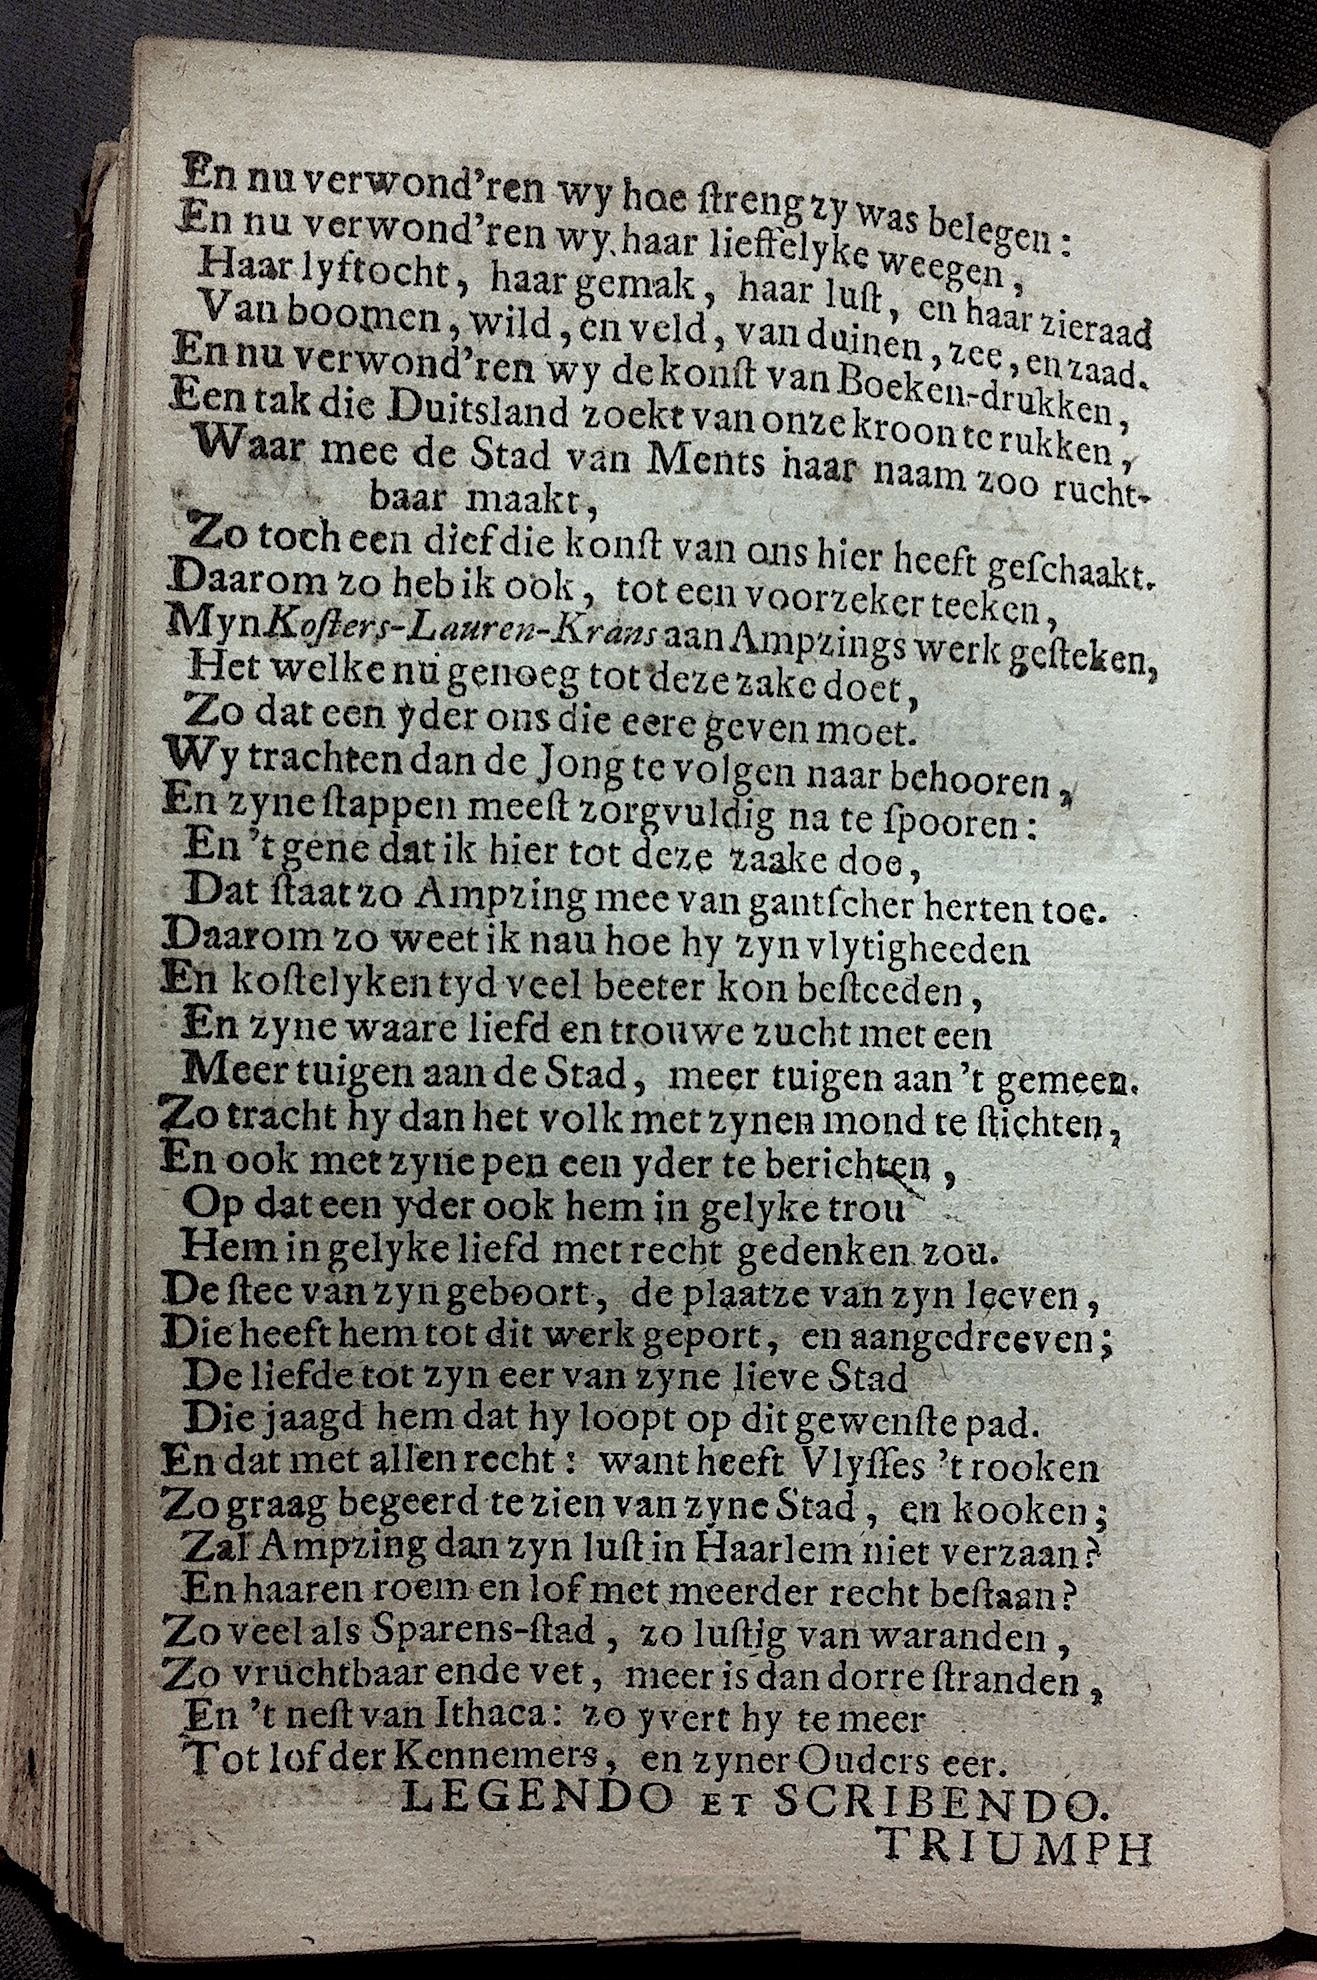 En nu verwond'ren wy hoe ſtreng zy was belegen:
En nu verwond'ren wy haar lieffelyke weegen,
Haar lyftocht, haar gemak, haar luſt, en haar zieraad
Van boomen, wild, en veld, van duinen, zee, en zaad.
En nu verwond'ren wy de konſt van Boeken-drukken,
Een tak die Duitsland zoekt van onze kroon te rukken,
Waar mee de Stad van Ments haar naam zoo rucht-
baar maakt,
Zo toch een dief die konſt van ons hier heeft geſchaakt.
Daarom zo heb ik ook, tot een voorzeker teeken,
Myn Koſters-Lauren-Krans aan Ampzings werk geſteken,
Het welke nu genoeg tot deze zake doet,
Zo dat een yder ons die eere geven moet.
Wy trachten dan de Jong te volgen naar behooren,
En zyne ſtappen meeſt zorgvuldig na te ſpooren:
En 't gene dat ik hier tot deze zaake doe,
Dat ſtaat zo Ampzing mee van gantſcher herten toe.
Daarom zo weet ik nau hoe hy zyn vlytigheeden
En koſtelyken tyd veel beeter kon beſteeden,
En zyne waare liefd en trouwe zucht met een
Meer tuigen aan de Stad, meer tuigen aan 't gemeen.
Zo tracht hy dan het volk met zynen mond te ſtichten,
En ook met zyne pen een yder te berichten,
Op dat een yder ook hem in gelyke trou
Hem in gelyke liefd met recht gedenken zou.
De ſtee van zyn geboort, de plaatze van zyn leeven,
Die heeft hem tot dit werk geport, en aangedreeven;
De liefde tot zyn eer van zyne lieve Stad
Die jaagd hem dat hy loopt op dit gewenſte pad.
En dat met allen recht: want heeft Vlyſſes 't rooken
Zo graag begeerd te zien van zyne Stad, en kooken;
Zal Ampzing dan zyn luſt in Haarlem niet verzaan?
En haaren roem en lof met meerder recht beſtaan?
Zo veel als Sparens-ſtad, zo luſtig van waranden,
Zo vruchtbaar ende vet, meer is dan dorre ſtranden,
En 't neſt van Ithaca: zo yvert hy te meer
Tot lof der Kennemers, en zyner Ouders eer.
LEGENDO ET SCRIBENDO.
TRIUMPH